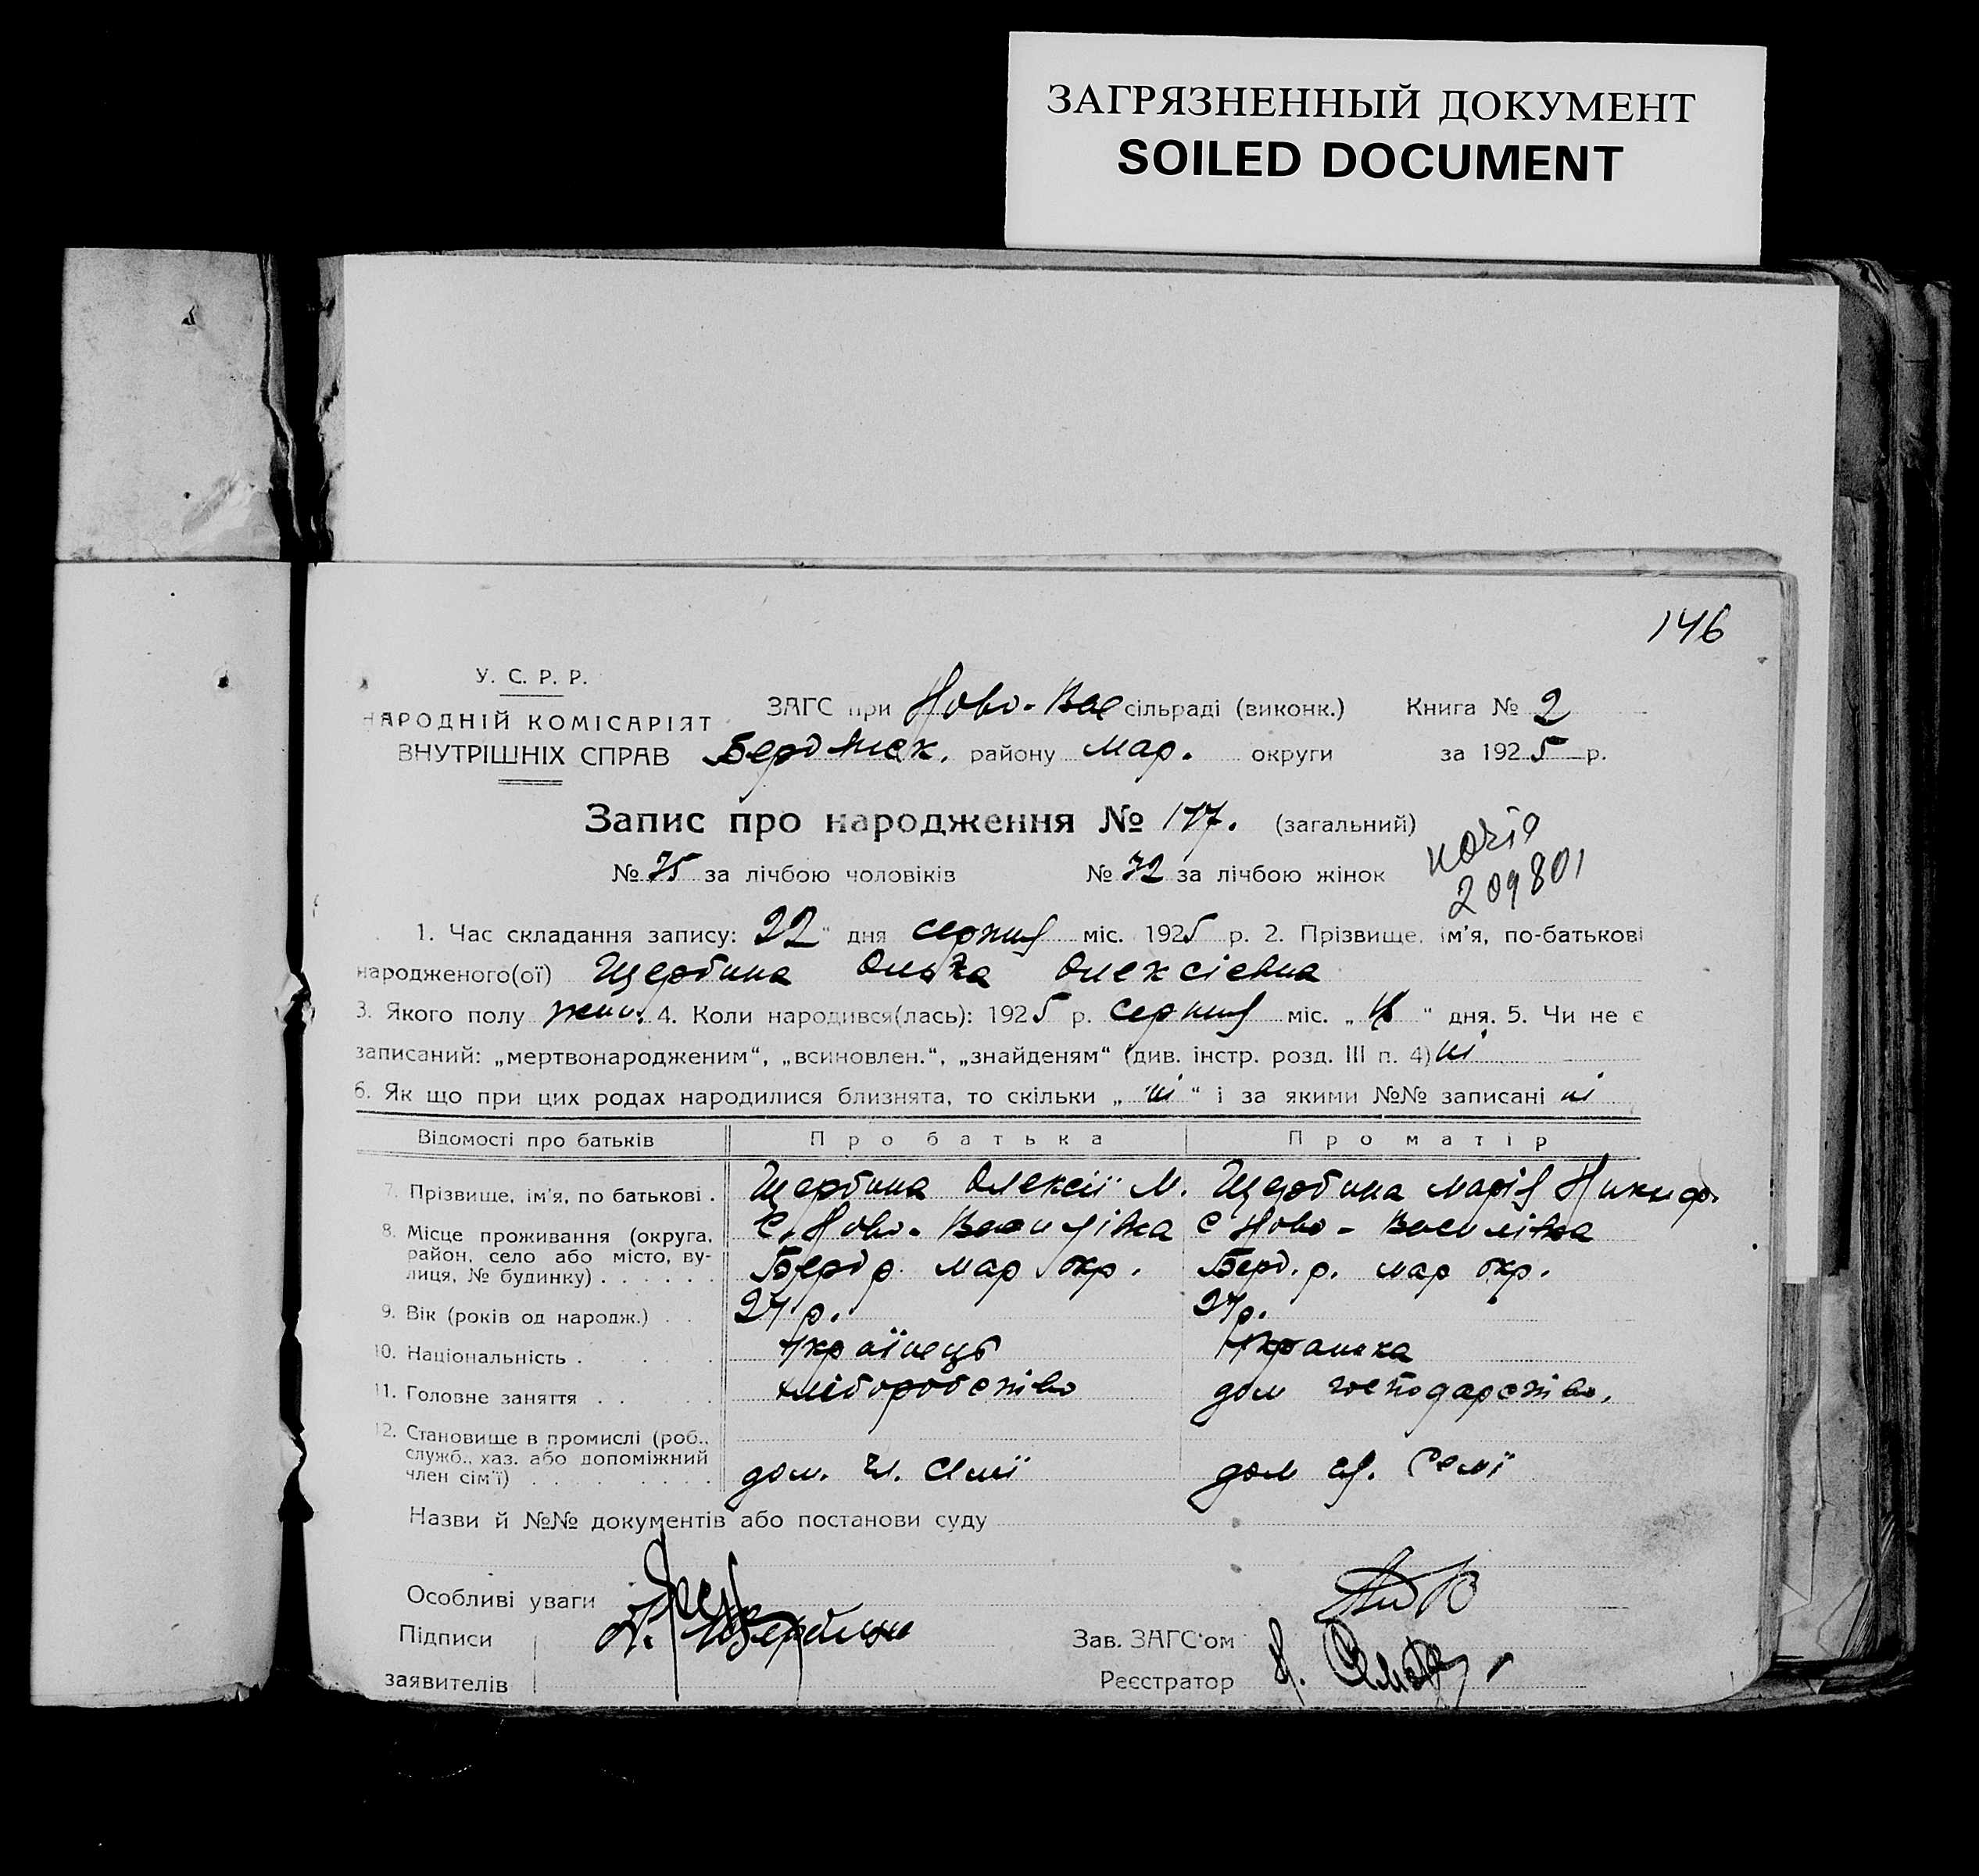 ЗАГРЯЗНЕННЫЙ ДОКУМЕНТ
SOILED DOCUMENT
146
У. С. Р. Р.
НАРОДНІЙ КОМІСАРІЯТ
ВНУТРІШНІХ СПРАВ
ЗАГС при Ново-Вас сільраді (виконк.) Книга № 2
Бердянск. району Мар. округи за 1925 р.
Запис про народження № 147. (загальний)
№ 75 за лічбою чоловіків № 72 за лічбою жінок
копія
209801
1. Час складання запису: 22" дня серпня міс. 1925 р. 2. Прізвище, ім'я, по-батькові
народженого(ої) Щербина Ольга Олексієвна
3. Якого полу жін. 4. Коли народився(лась): 1925 р. серпня міс. „ " дня. 5. Чи не є
записаний: „мертвонародженим“, „всиновлен.“, „знайденям“ (див. інстр. розд. III п. 4) ні
6. Як що при цих родах народилися близнята, то скільки „ ні “ і за якими №№ записані ні
Відомості про батьків Про батька Про матір
7. Прізвище, ім'я, по батькові . Щербина Олексій М. Щербина Марія Никиф.
8. Місце проживання (округа, район, село або місто, вулиця, № будинку) . . . . . . с. Ново-Василівка с Ново-Василівка
Берд р. мар окр. Берд. р. мар окр.
9. Вік (років од народж.) . . 27 р. 27 р.
10. Національність . . . . . Українець Українка
11. Головне заняття . . . . . хліборобство дом господарство.
12. Становище в промислі (роб., служб., хаз. або допоміжний член сім'ї) . . . . . . . . дом. гл. сімї дом чл. семї
Назви й №№ документів або постанови суду
Особливі уваги
Підписи Щербина
заявителів
Зав. ЗАГС'ом
Реєстратор